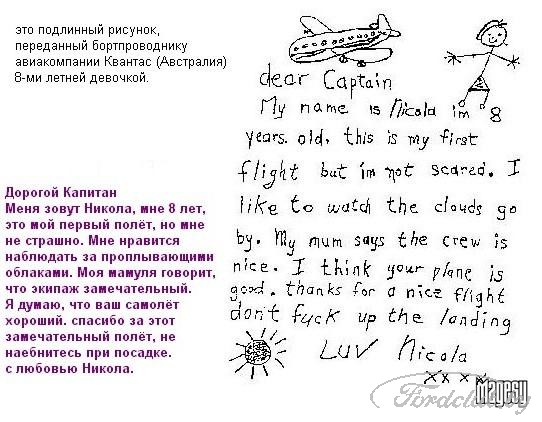 это подлинный рисунок,
переданный бортпроводнику
авиакомпании Квантас (Австралия)
8-ми летней девочкой.
dear Captain
My name is Nicola im 8
years old, this is my first
flight but im not scared. I
like to watch the clouds go
by. My mum says the crew is
nice. I think your plane is
good. thanks for a nice flight
don't fuck up the landing
LUV Nicola
x x x x
Дорогой Капитан
Меня зовут Никола, мне 8 лет,
это мой первый полёт, но мне
не страшно. Мне нравится
наблюдать за проплывающими
облаками. Моя мамуля говорит,
что экипаж замечательный.
Я думаю, что ваш самолёт
хороший. спасибо за этот
замечательный полёт, не
наебнитесь при посадке.
с любовью Никола.
magesy
Fordclub.by